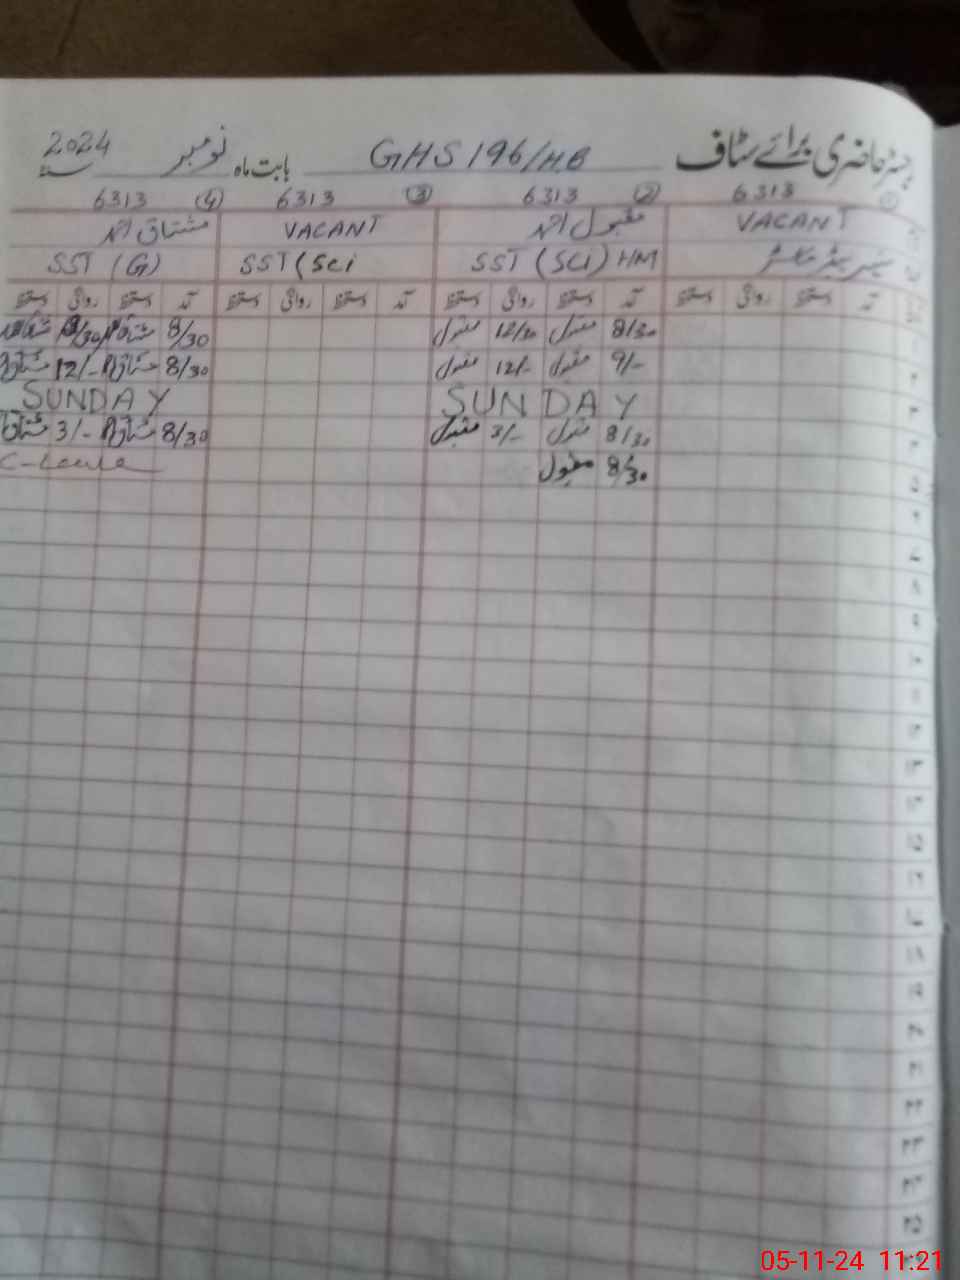 رجسٹر حاضری برائے سٹاف GHS 196/HB بابت ماہ نومبر سنہ 2024
① 6313 ② 6313 ③ 6313 ④ 6313
VACANT مقبول احمد VACANT مشتاق احمد
سینئر ہیڈ ماسٹر SST (SCI) HM SST (Sci SST (G)
آمد دستخط روانگی دستخط آمد دستخط روانگی دستخط آمد دستخط روانگی دستخط آمد دستخط روانگی دستخط
۱ 8/30 مقبول 12/30 مقبول 8/30 مشتاق
۲ 9/- مقبول 12/- مقبول 8/30 مشتاق 12/- مشتاق
۳ SUNDAY SUNDAY
۴ 8/30 مقبول 3/- مقبول 8/30 مشتاق 3/- مشتاق
۵ 8/30 مقبول C-Leave
۶
۷
۸
۹
۱۰
۱۱
۱۲
۱۳
۱۴
۱۵
۱۶
۱۷
۱۸
۱۹
۲۰
۲۱
۲۲
۲۳
۲۴
۲۵
05-11-24 11:21